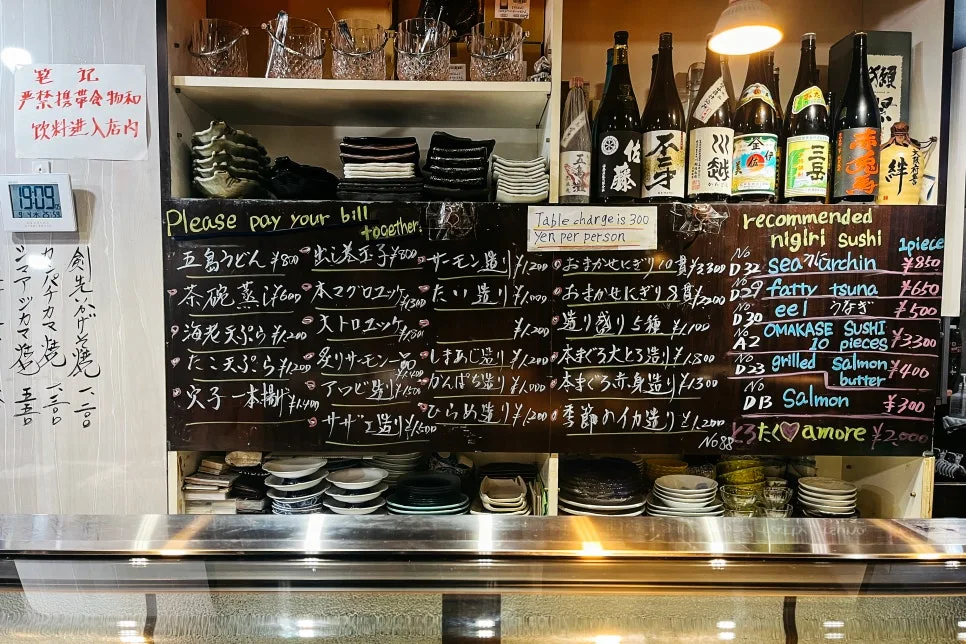 笔记
严禁携带食物和
饮料进入店内
19:09
剣先いかげそ焼 一、一〇〇
カンパチカマ焼 一、三〇〇
シマアジカマ焼 一、五五〇
Please pay your bill
together.
五島うどん ¥800
茶碗蒸し ¥600
海老天ぷら ¥1,200
たこ天ぷら ¥1,200
穴子一本揚げ ¥1,400
出し巻玉子 ¥800
本マグロユッケ ¥1,300
大トロユッケ
炙りサーモン
アワビ造り ¥1,500
サザエ造り ¥1,500
サーモン造り ¥1,200
たい造り ¥1,000
¥1,200
しまあじ造り ¥1,200
かんぱち造り ¥1,000
ひらめ造り ¥1,200
Table charge is 300
Yen per person
おまかせにぎり10貫 ¥3300
おまかせにぎり8貫 ¥2200
造り盛り5種 ¥1,100
本まぐろ大とろ造り ¥1,800
本まぐろ赤身造り ¥1300
季節のイカ造り ¥1,200
recommended
nigiri sushi
1piece
No D32 sea urchin うに ¥850
No D29 fatty tsuna ¥650
No D30 eel うなぎ ¥500
No A2 OMAKASE SUSHI
10 pieces ¥3300
No D23 grilled salmon
butter ¥400
No D13 Salmon ¥300
No88 とろたく♡amore ¥2,000
佐藤
不二才
川越
三岳
赤兎馬
絆